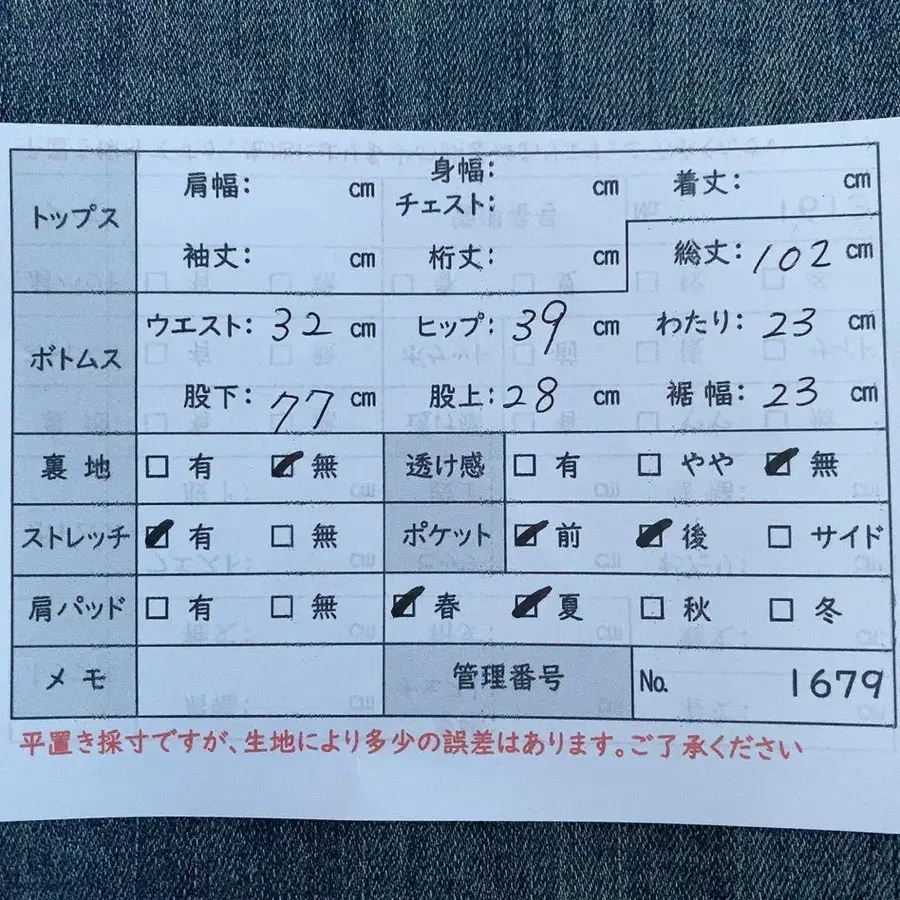 トップス 肩幅: cm 身幅: チェスト: cm 着丈: cm
袖丈: cm 裄丈: cm 総丈: 102 cm
ボトムス ウエスト: 32 cm ヒップ: 39 cm わたり: 23 cm
股下: 77 cm 股上: 28 cm 裾幅: 23 cm
裏地 □有 ☑無 透け感 □有 □やや ☑無
ストレッチ ☑有 □無 ポケット ☑前 ☑後 □サイド
肩パッド □有 □無 ☑春 ☑夏 □秋 □冬
メモ 管理番号 No. 1679
平置き採寸ですが、生地により多少の誤差はあります。ご了承ください